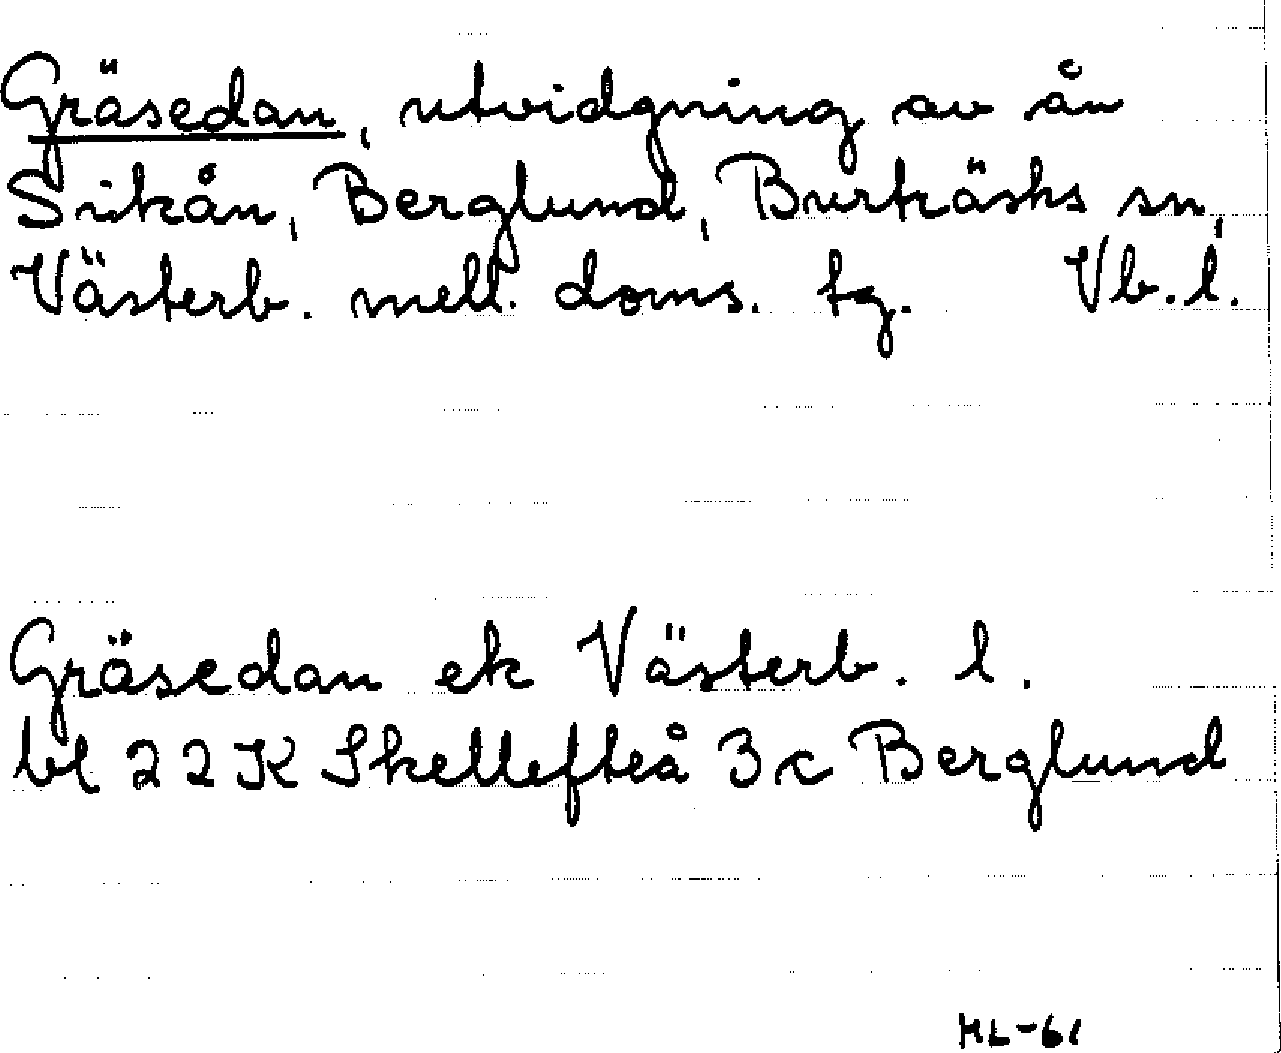 Gräsedan, utvidgning av ån
Sikån, Berglund, Burträsks sn,
Västerb. mell. doms. tg. Vb. l.
Gräsedan ek Västerb. l.
bl 22 K Skellefteå 3 c Berglund
HL-61